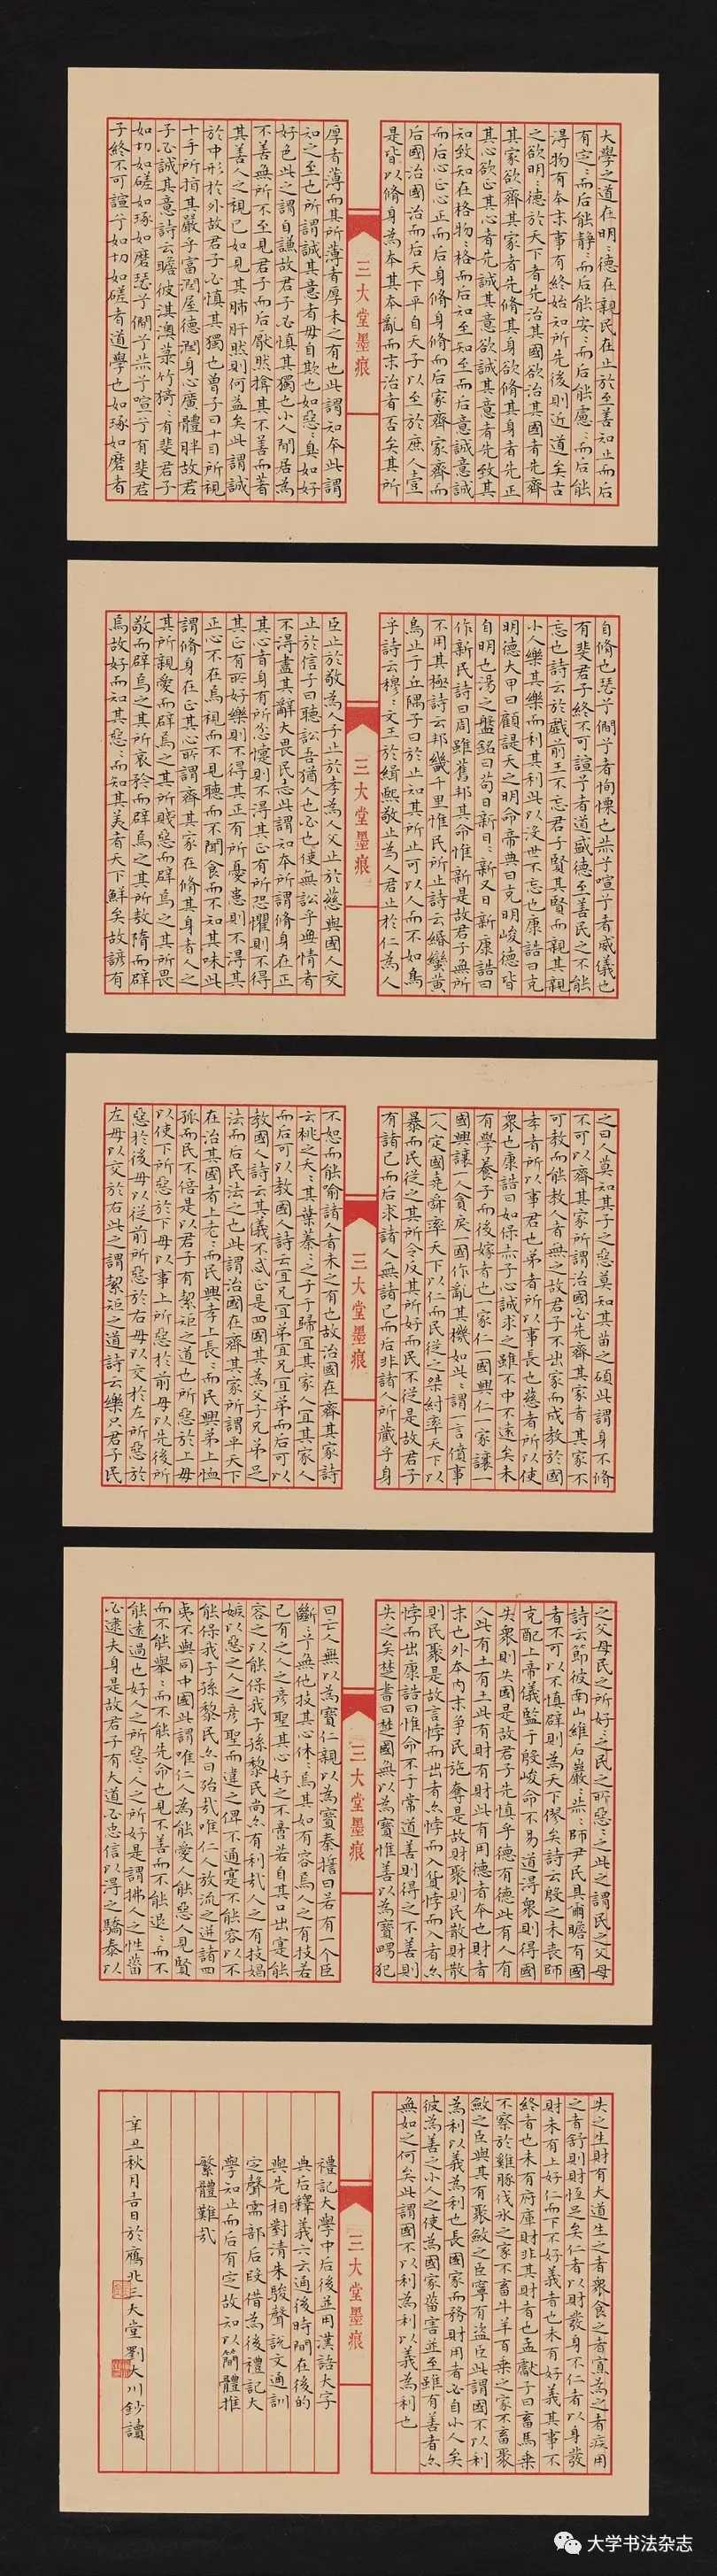 大學之道在明〻德在親民在止於至善知止而后
有定〻而后能靜〻而后能安〻而后能慮〻而后能
得物有本末事有終始知所先後則近道矣古
之欲明〻德於天下者先治其國欲治其國者先齊
其家欲齊其家者先脩其身欲脩其身者先正
其心欲正其心者先誠其意欲誠其意者先致其
知致知在格物〻格而后知至知至而后意誠意誠
而后心正心正而后身脩身脩而后家齊家齊而
后國治國治而后天下平自天子以至於庶人壹
是皆以脩身為本其本亂而末治者否矣其所
三大堂墨痕
厚者薄而其所薄者厚未之有也此謂知本此謂
知之至也所謂誠其意者毋自欺也如惡〻臭如好
好色此之謂自謙故君子必慎其獨也小人閒居為
不善無所不至見君子而后厭然揜其不善而著
其善人之視己如見其肺肝然則何益矣此謂誠
於中形於外故君子必慎其獨也曾子曰十目所視
十手所指其嚴乎富潤屋德潤身心廣體胖故君
子必誠其意詩云瞻彼淇澳菉竹猗〻有斐君子
如切如磋如琢如磨瑟兮僩兮赫兮喧兮有斐君
子終不可諠兮如切如磋者道學也如琢如磨者
自脩也瑟兮僩兮者恂慄也赫兮喧兮者威儀也
有斐君子終不可諠兮者道盛德至善民之不能
忘也詩云於戲前王不忘君子賢其賢而親其親
小人樂其樂而利其利此以沒世不忘也康誥曰克
明德大甲曰顧諟天之明命帝典曰克明峻德皆
自明也湯之盤銘曰苟日新日〻新又日新康誥曰
作新民詩曰周雖舊邦其命惟新是故君子無所
不用其極詩云邦畿千里惟民所止詩云緡蠻黃
鳥止于丘隅子曰於止知其所止可以人而不如鳥
乎詩云穆〻文王於緝熙敬止為人君止於仁為人
三大堂墨痕
臣止於敬為人子止於孝為人父止於慈與國人交
止於信子曰聽訟吾猶人也必也使無訟乎無情者
不得盡其辭大畏民志此謂知本所謂脩身在正
其心者身有所忿懥則不得其正有所恐懼則不得
其正有所好樂則不得其正有所憂患則不得其
正心不在焉視而不見聽而不聞食而不知其味此
謂脩身在正其心所謂齊其家在脩其身者人之
其所親愛而辟焉之其所賤惡而辟焉之其所畏
敬而辟焉之其所哀矜而辟焉之其所敖惰而辟
焉故好而知其惡〻而知其美者天下鮮矣故諺有
之曰人莫知其子之惡莫知其苗之碩此謂身不脩
不可以齊其家所謂治國必先齊其家者其家不
可教而能教人者無之故君子不出家而成教於國
孝者所以事君也弟者所以事長也慈者所以使
衆也康誥曰如保赤子心誠求之雖不中不遠矣未
有學養子而後嫁者也一家仁一國興仁一家讓一
國興讓一人貪戾一國作亂其機如此此謂一言僨事
一人定國堯舜率天下以仁而民從之桀紂率天下以
暴而民從之其所令反其所好而民不從是故君子
有諸己而后求諸人無諸己而后非諸人所藏乎身
三大堂墨痕
不恕而能喻諸人者未之有也故治國在齊其家詩
云桃之夭〻其葉蓁〻之子于歸宜其家人宜其家人
而后可以教國人詩云宜兄宜弟宜兄宜弟而后可以
教國人詩云其儀不忒正是四國其為父子兄弟足
法而后民法之也此謂治國在齊其家所謂平天下
在治其國者上老〻而民興孝上長〻而民興弟上恤
孤而民不倍是以君子有絜矩之道也所惡於上毋
以使下所惡於下毋以事上所惡於前毋以先後所
惡於後毋以從前所惡於右毋以交於左所惡於
左毋以交於右此之謂絜矩之道詩云樂只君子民
之父母民之所好〻之民之所惡〻之此之謂民之父母
詩云節彼南山維石巖〻赫〻師尹民具爾瞻有國
者不可以不慎辟則為天下僇矣詩云殷之未喪師
克配上帝儀監于殷峻命不易道得衆則得國
失衆則失國是故君子先慎乎德有德此有人有
人此有土有土此有財有財此有用德者本也財者
末也外本內末爭民施奪是故財聚則民散財散
則民聚是故言悖而出者亦悖而入貨悖而入者亦
悖而出康誥曰惟命不于常道善則得之不善則
失之矣楚書曰楚國無以為寶惟善以為寶舅犯
三大堂墨痕
曰亡人無以為寶仁親以為寶秦誓曰若有一个臣
斷〻兮無他技其心休〻焉其如有容焉人之有技若
己有之人之彥聖其心好之不啻若自其口出寔能
容之以能保我子孫黎民尚亦有利哉人之有技媢
嫉以惡之人之彥聖而違之俾不通寔不能容以不
能保我子孫黎民亦曰殆哉唯仁人放流之迸諸四
夷不與同中國此謂唯仁人為能愛人能惡人見賢
而不能舉〻而不能先命也見不善而不能退〻而不
能遠過也好人之所惡〻人之所好是謂拂人之性菑
必逮夫身是故君子有大道必忠信以得之驕泰以
失之生財有大道生之者衆食之者寡為之者疾用
之者舒則財恆足矣仁者以財發身不仁者以身發
財未有上好仁而下不好義者也未有好義其事不
終者也未有府庫財非其財者也孟獻子曰畜馬乘
不察於雞豚伐冰之家不畜牛羊百乘之家不畜聚
斂之臣與其有聚斂之臣寧有盜臣此謂國不以利
為利以義為利也長國家而務財用者必自小人矣
彼為善之小人之使為國家菑害並至雖有善者亦
無如之何矣此謂國不以利為利以義為利也
三大堂墨痕
禮記大學中后後並用漢語大字
典后釋義六云通後時間在後的
與先相對清朱駿聲說文通訓
定聲需部后叚借為後禮記大
學知止而后有定故知以簡體推
繁體難哉
辛丑秋月吉日於鴈北三大堂劉大川鈔讀
大学书法杂志